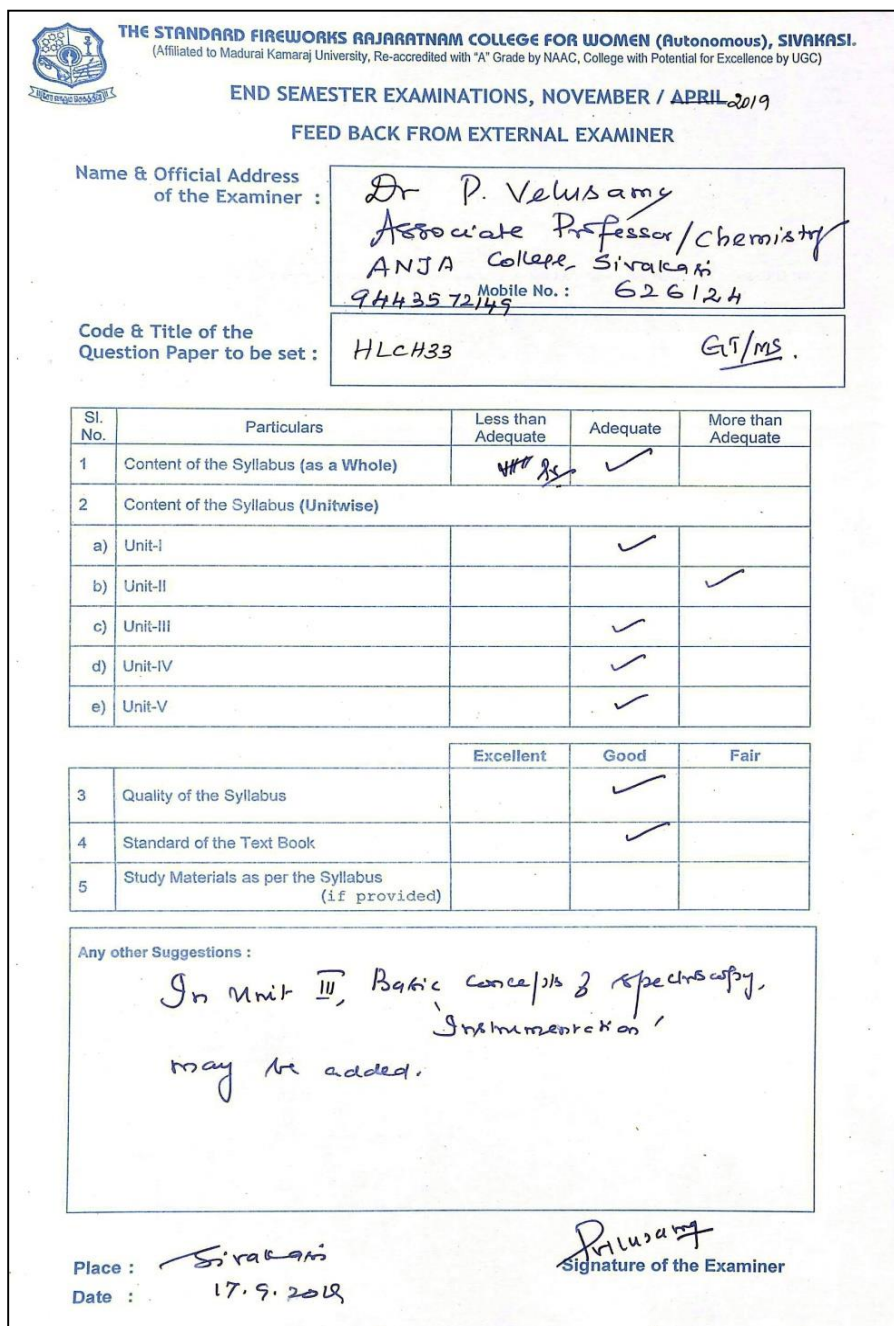 THE STANDARD FIREWORKS RAJARATNAM COLLEGE FOR WOMEN (Autonomous), SIVAKASI.
(Affiliated to Madurai Kamaraj University, Re-accredited with "A" Grade by NAAC, College with Potential for Excellence by UGC)
END SEMESTER EXAMINATIONS, NOVEMBER / APRIL 2019
FEED BACK FROM EXTERNAL EXAMINER
Name & Official Address
of the Examiner :
Dr P. Velusamy
Associate Professor/Chemistry
ANJA College, Sivakasi
Mobile No. : 626124
9443572149
Code & Title of the
Question Paper to be set :
HLCH33 GT/MS.
Sl. No. Particulars Less than Adequate Adequate More than Adequate
1 Content of the Syllabus (as a Whole) ✓
2 Content of the Syllabus (Unitwise)
a) Unit-I ✓
b) Unit-II ✓
c) Unit-III ✓
d) Unit-IV ✓
e) Unit-V ✓
Excellent Good Fair
3 Quality of the Syllabus ✓
4 Standard of the Text Book ✓
5 Study Materials as per the Syllabus
(if provided)
Any other Suggestions :
In Unit Basic concepts of spectroscopy,
'Instrumentation'
may be added.
Place : Sivakasi
Date : 17.9.2019
PVelusamy
Signature of the Examiner